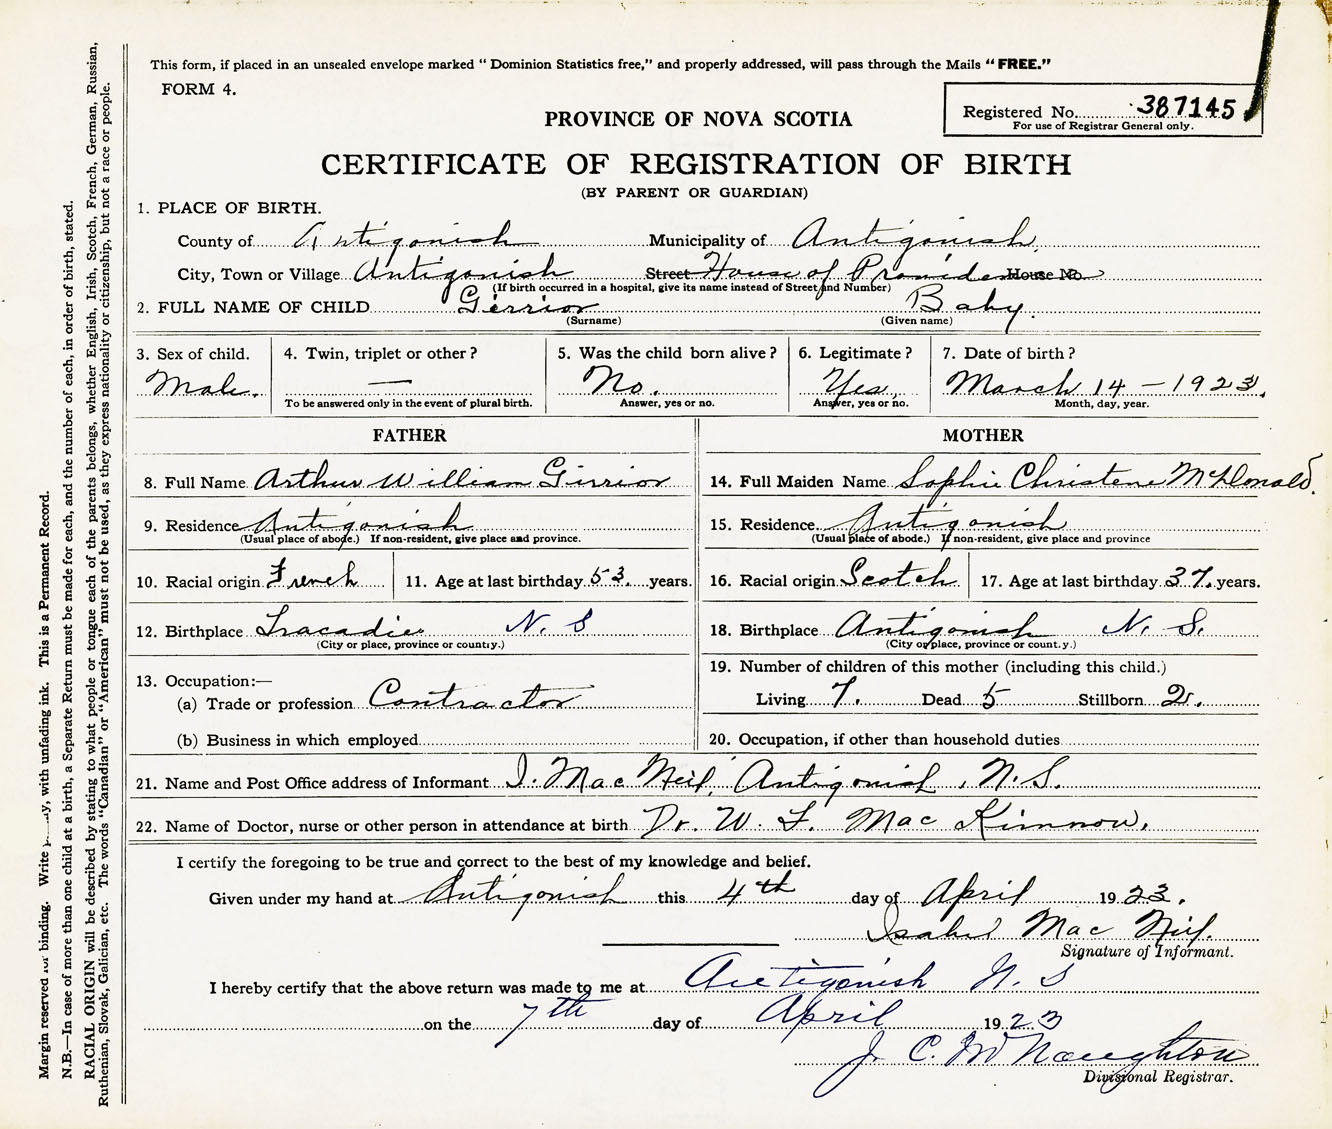 This form, if placed in an unsealed envelope marked “ Dominion Statistics free,” and properly addressed, will pass through the Mails “ FREE.”
FORM 4.
Registered No. 387145
For use of Registrar General only.
PROVINCE OF NOVA SCOTIA
CERTIFICATE OF REGISTRATION OF BIRTH
(BY PARENT OR GUARDIAN)
1. PLACE OF BIRTH.
County of Antigonish Municipality of Antigonish
City, Town or Village Antigonish Street House of Providence House No.
(If birth occurred in a hospital, give its name instead of Street and Number)
2. FULL NAME OF CHILD Girrior Baby.
(Surname) (Given name)
3. Sex of child. 4. Twin, triplet or other ? 5. Was the child born alive ? 6. Legitimate ? 7. Date of birth ?
Male. — No. Yes. March 14 - 1923.
To be answered only in the event of plural birth. Answer, yes or no. Answer, yes or no. Month, day, year.
FATHER MOTHER
8. Full Name Arthur William Girrior 14. Full Maiden Name Sophie Christene McDonald.
9. Residence Antigonish 15. Residence. Antigonish
(Usual place of abode.) If non-resident, give place and province. (Usual place of abode.) If non-resident, give place and province
10. Racial origin French 11. Age at last birthday 53. years. 16. Racial origin Scotch 17. Age at last birthday 37. years.
12. Birthplace Tracadie N. S 18. Birthplace Antigonish N. S.
(City or place, province or county.) (City or place, province or county.)
19. Number of children of this mother (including this child.)
13. Occupation:—
(a) Trade or profession Contractor Living 7. Dead 5 Stillborn 2.
(b) Business in which employed 20. Occupation, if other than household duties
21. Name and Post Office address of Informant I. MacNeil, Antigonish, N.S.
22. Name of Doctor, nurse or other person in attendance at birth Dr. W. F. MacKinnon.
I certify the foregoing to be true and correct to the best of my knowledge and belief.
Given under my hand at Antigonish this 4th day of April 1923.
Isabel MacNeil.
Signature of Informant.
I hereby certify that the above return was made to me at Antigonish N. S
on the 7th day of April 1923
J. C. McNaughton
Divisional Registrar.
Margin reserved for binding. Write , with unfading ink. This is a Permanent Record.
N.B.—In case of more than one child at a birth, a Separate Return must be made for each, and the number of each, in order of birth, stated.
RACIAL ORIGIN will be described by stating to what people or tongue each of the parents belongs, whether English, Irish, Scotch, French, German, Russian,
Ruthenian, Slovak, Galician, etc. The words “Canadian” or “American” must not be used, as they express nationality or citizenship, but not a race or people.